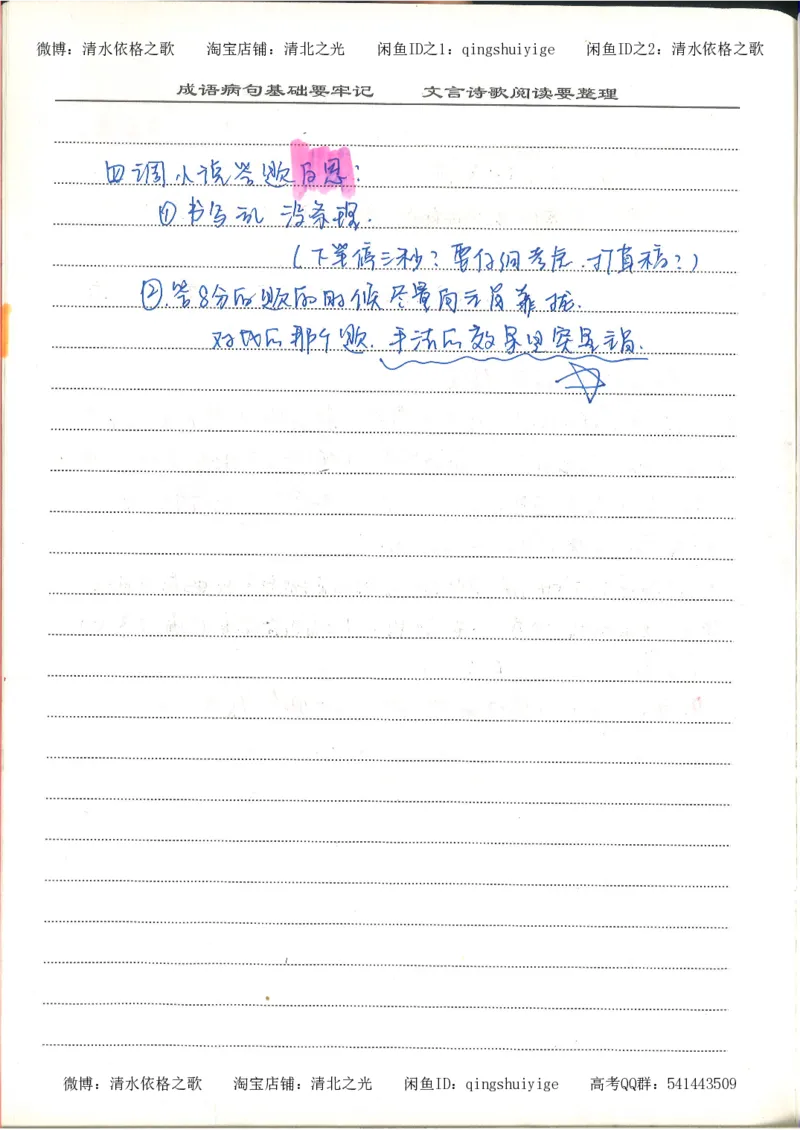 微博：清水依格之歌 淘宝店铺：清北之光 闲鱼ID之1：qingshuiyige 闲鱼ID之2：清水依格之歌
成语病句基础要牢记 文言诗歌阅读要整理
四调小说答题反思：
① 书写乱 没条理.
(下笔停三秒？要仔细考虑.打草稿？)
② 答8分的题的时候尽量向主旨靠拢.
对比后那个题.手法后效果里突显主旨.
微博：清水依格之歌 淘宝店铺：清北之光 闲鱼ID：qingshuiyige 高考QQ群：541443509